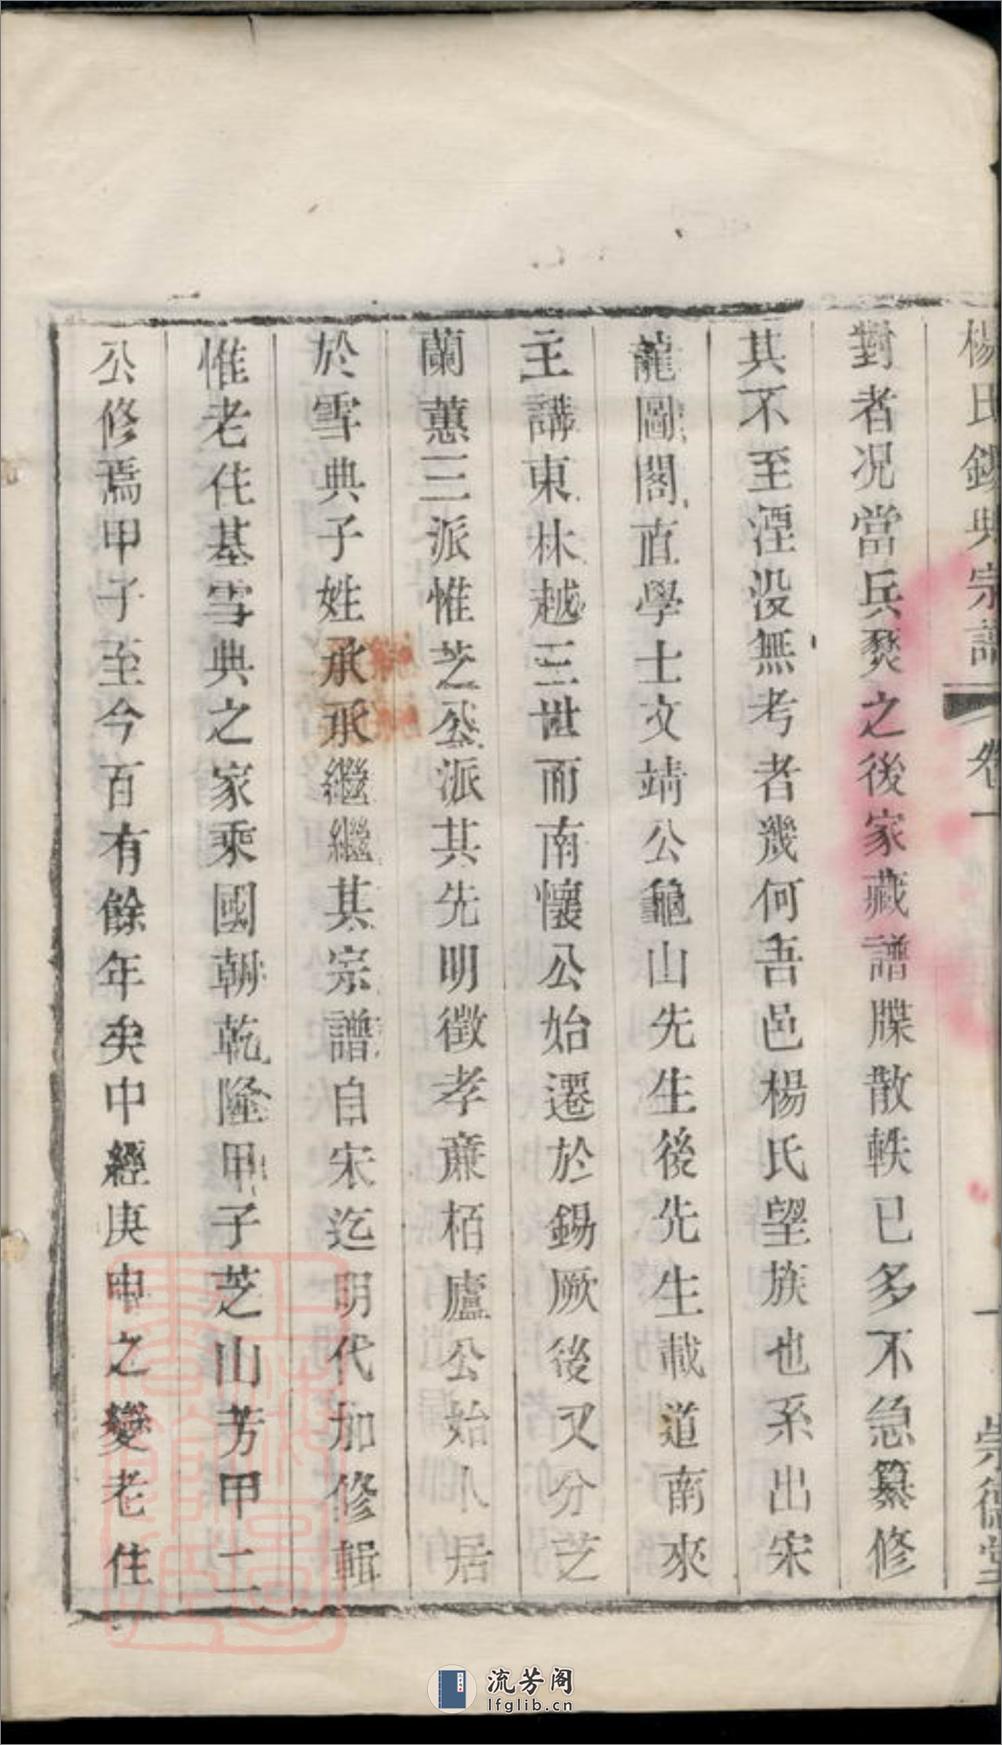 楊氏錫典宗譜 卷一 一 崇德堂
對者况當兵燹之後家藏譜牒散軼已多不急纂修
其不至湮没無考者幾何吾邑楊氏望族也系出宋
龍圖閣直學士文靖公龜山先生後先生載道南來
主講東林越三世而南懷公始遷於錫厥後又分芝
蘭蕙三派惟芝公派其先明徵孝亷栢廬公始卜居
於雪典子姓承承繼繼其宗譜自宋迄明代加修輯
惟老住基雪典之家乘國朝乾隆甲子芝山芳甲二
公修焉甲子至今百有餘年矣中經庚申之變老住
流芳阁
lfglib.cn